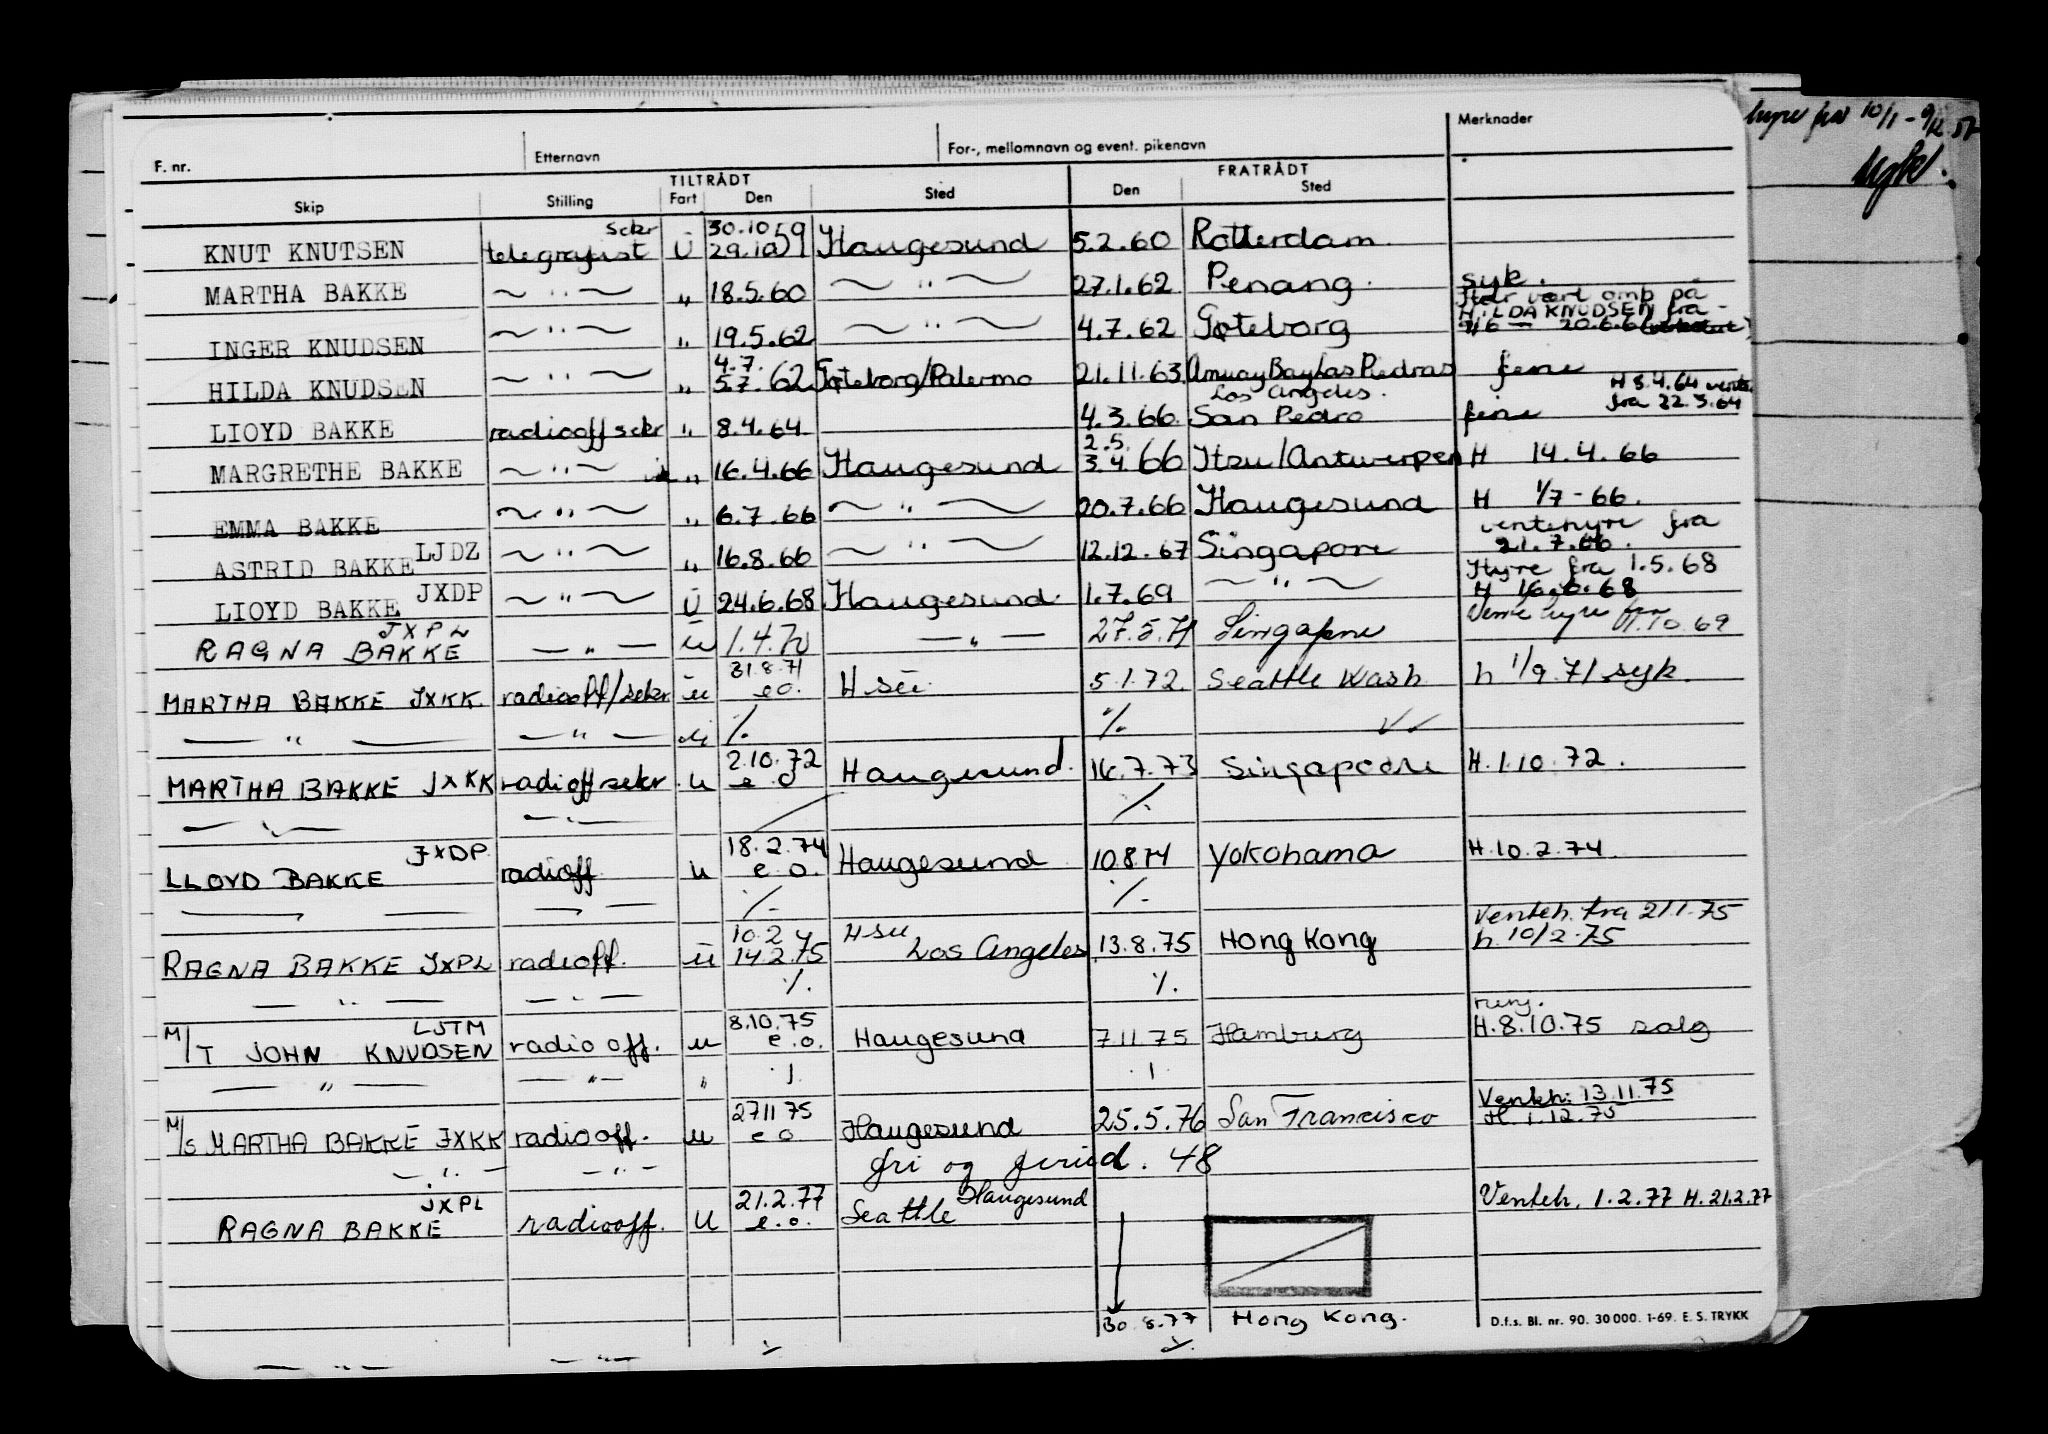 hyre fra 10/1 - 9/12 57
F. nr. Etternavn For-, mellomnavn og event. pikenavn Merknader
TILTRÅDT FRATRÅDT
Skip Stilling Fart Den Sted Den Sted
sekr 30.10 59
KNUT KNUTSEN telegrafist Ü 29.10 Haugesund 5.2.60 Rotterdam
MARTHA BAKKE ~ " ~ " 18.5.60 ~ " ~ 27.1.62 Penang. syk.
Har vært omb på
HILDA KNUDSEN fra
INGER KNUDSEN ~ " ~ " 19.5.62 ~ " ~ 4.7.62 Gøteborg 7/6 — 20.6.6
4.7.
HILDA KNUDSEN ~ " ~ " 5.7. 62 Gøteborg/Palermo 21.11.63 Amuay Bay Las Piedras ferie
Los Angeles. H 8.4.64 vente.
fra 22.3.64
LIOYD BAKKE radiooff sekr " 8.4.64 4.3.66 San Pedro ferie
2.5.
MARGRETHE BAKKE ~ " ~ " 16.4.66 Haugesund 3.4 66 Itzu/Antwerpen H 14.4.66
EMMA BAKKE ~ " ~ " 6.7.66 ~ " ~ 20.7.66 Haugesund H 1/7-66.
ventehyre fra
21.7.66.
ASTRID BAKKE LJDZ ~ " ~ " 16.8.66 ~ " ~ 12.12.67 Singapore
Hyre fra 1.5.68
LIOYD BAKKE JXDP ~ " ~ Ü 24.6.68 Haugesund. 1.7.69 ~ " ~ H 16.6.68
JXPL
RAGNA BAKKE — " — ü 1.4.70 — " — 27.5.71 Singapore Vente hyre fra 1.10.69
31.8.71
MARTHA BAKKE JXKK. radiooff/sekr ü eo. H su 5.1.72. Seattle Wash h 1/9.71 syk.
— " — — " — ./. ./. ✓✓
2.10.72
MARTHA BAKKE JXKK radioff sekr u e o Haugesund. 16.7.73 Singapoore H.1.10.72.
— " — — " — / ./.
JXDP. 18.2.74
LLOYD BAKKE radioff u e.o. Haugesund 10.8.74 Yokohama H.10.2.74.
— " — — " — ./. ./.
Venteh. fra 21.1.75
10.2 H su
RAGNA BAKKE JXPL radioff. ü 14.2.75 Los Angeles 13.8.75 Hong Kong h. 10/2.75
— " — — " — ./. ./.
reng.
LJTM 8.10.75
M/T JOHN KNUDSEN radio off. u e.o. Haugesund 7.11.75 Hamburg H.8.10.75 salg
— " — — " — " . 1. . 1.
27.11.75 Venteh. 13.11.75
M/S MARTHA BAKKE JXKK radiooff. u e o Haugesund 25.5.76 San Francisco H. 1.12.75
— " — — " — fri og feried. 48
JXPL 21.2.77 Haugesund
RAGNA BAKKE radiooff. U e.o. Seattle Venteh. 1.2.77 H. 21.2.77
30.8.77 Hong Kong.
D.f.s. Bl. nr. 90. 30 000. 1-69. E. S. TRYKK
— " — — " — ./. ./.